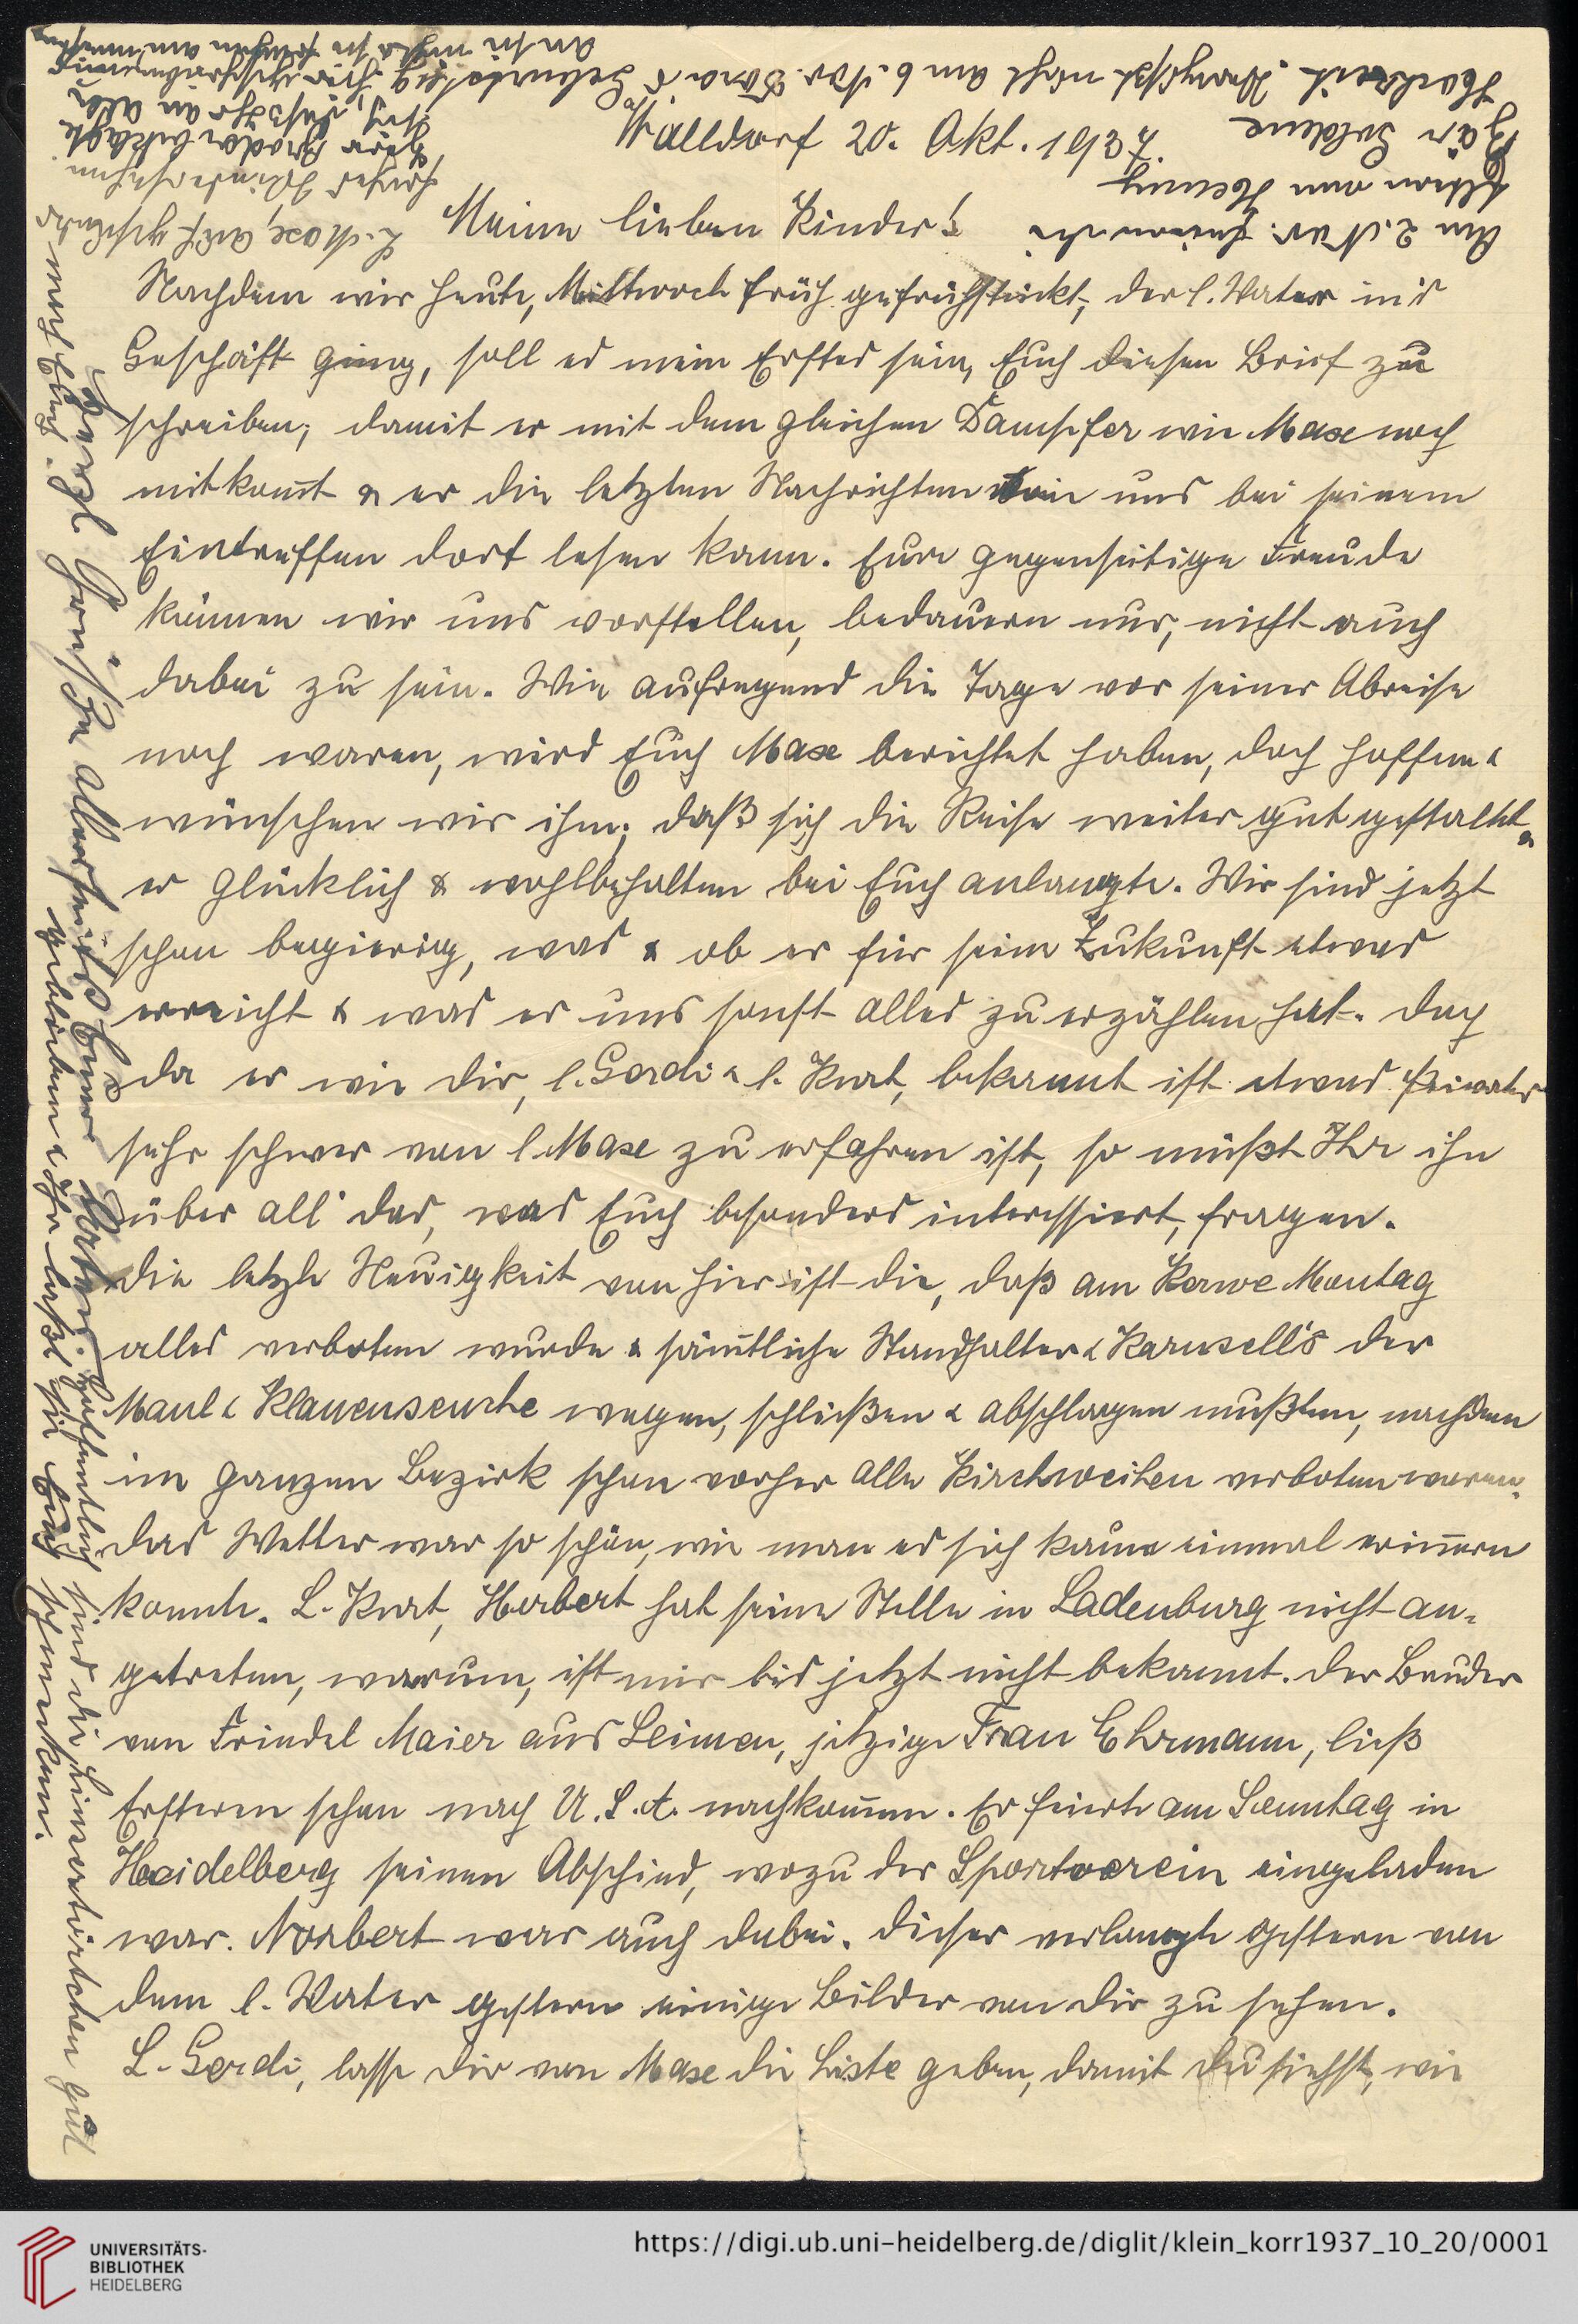 Walldorf 20. Okt. 1937.
Meine lieben Kinder!
Nachdem wir heute, Mittwoch früh gefrühstückt, der l. Vater in's
Geschäft ging, soll es mein Erstes sein, Euch diesen Brief zu
schreiben, damit er mit dem gleichen Dampfer wie Max noch
mitkom̄t & er die letzten Nachrichten von uns bei seinem
Eintreffen dort lesen kann. Eure gegenseitige Freude
können wir uns vorstellen, bedauern nur, nicht auch
dabei zu sein. Wie aufregend die Tage vor seiner Abreise
noch waren, wird Euch Max berichtet haben, doch hoffen &
wünschen wir ihm, daß sich die Reise weiter gut gestaltet &
er glücklich & wohlbehalten bei Euch anlangte. Wir sind jetzt
schon begierig, was & ob er für seine Zukunft etwas
erreicht & was er uns sonst alles zu erzählen hat. Doch
da er wie Dir, l. Gerdi & l. Kurt, bekannt ist etwas Privates
sehr schwer von l. Max zu erfahren ist, so müßt Ihr ihn
über all' das, was Euch besonders interessiert, fragen.
Die letzte Neuigkeit von hier ist die, daß am Kerwe Montag
alles verboten wurde & säm̄tliche Standhalter & Karusell's der
Maul & Klauenseuche wegen, schließen & abschlagen mußten, nachdem
im ganzen Bezirk schon vorher alle Kirchweihen verboten waren.
Das Wetter war so schön, wie man es sich kaum einmal erin̄ern
konnte. L. Kurt, Herbert hat seine Stelle in Ladenburg nicht an-
getreten, warum, ist mir bis jetzt nicht bekannt. Der Bruder
von Friedel Maier aus Leimen, jetzige Frau Ehrmann, ließ
Ersteren schon nach U.S.A. nachkom̄en. Er feierte am Sonntag in
Heidelberg seinen Abschied, wozu der Sportverein eingeladen
war. Norbert war auch dabei. Dieser verlangte gestern von
dem l. Vater gestern einige Bilder von Dir zu sehen.
L. Gerdi, lasse Dir von Max die Liste geben, damit Du siehst, wie
Herzl. Grüße allerseits Eure Eltern. Hoffentlich sind die Linzertörtchen gut
geblieben & Ihr laßt sie Euch schmecken.
Am 2. Nov. feiern die
Eltern von
Bär Goldene
Hochzeit. Vergeßt nicht am 6. Nov. Geburtstag
L. Max,
UNIVERSITÄTS-
BIBLIOTHEK
HEIDELBERG
https://digi.ub.uni-heidelberg.de/diglit/klein_korr1937_10_20/0001